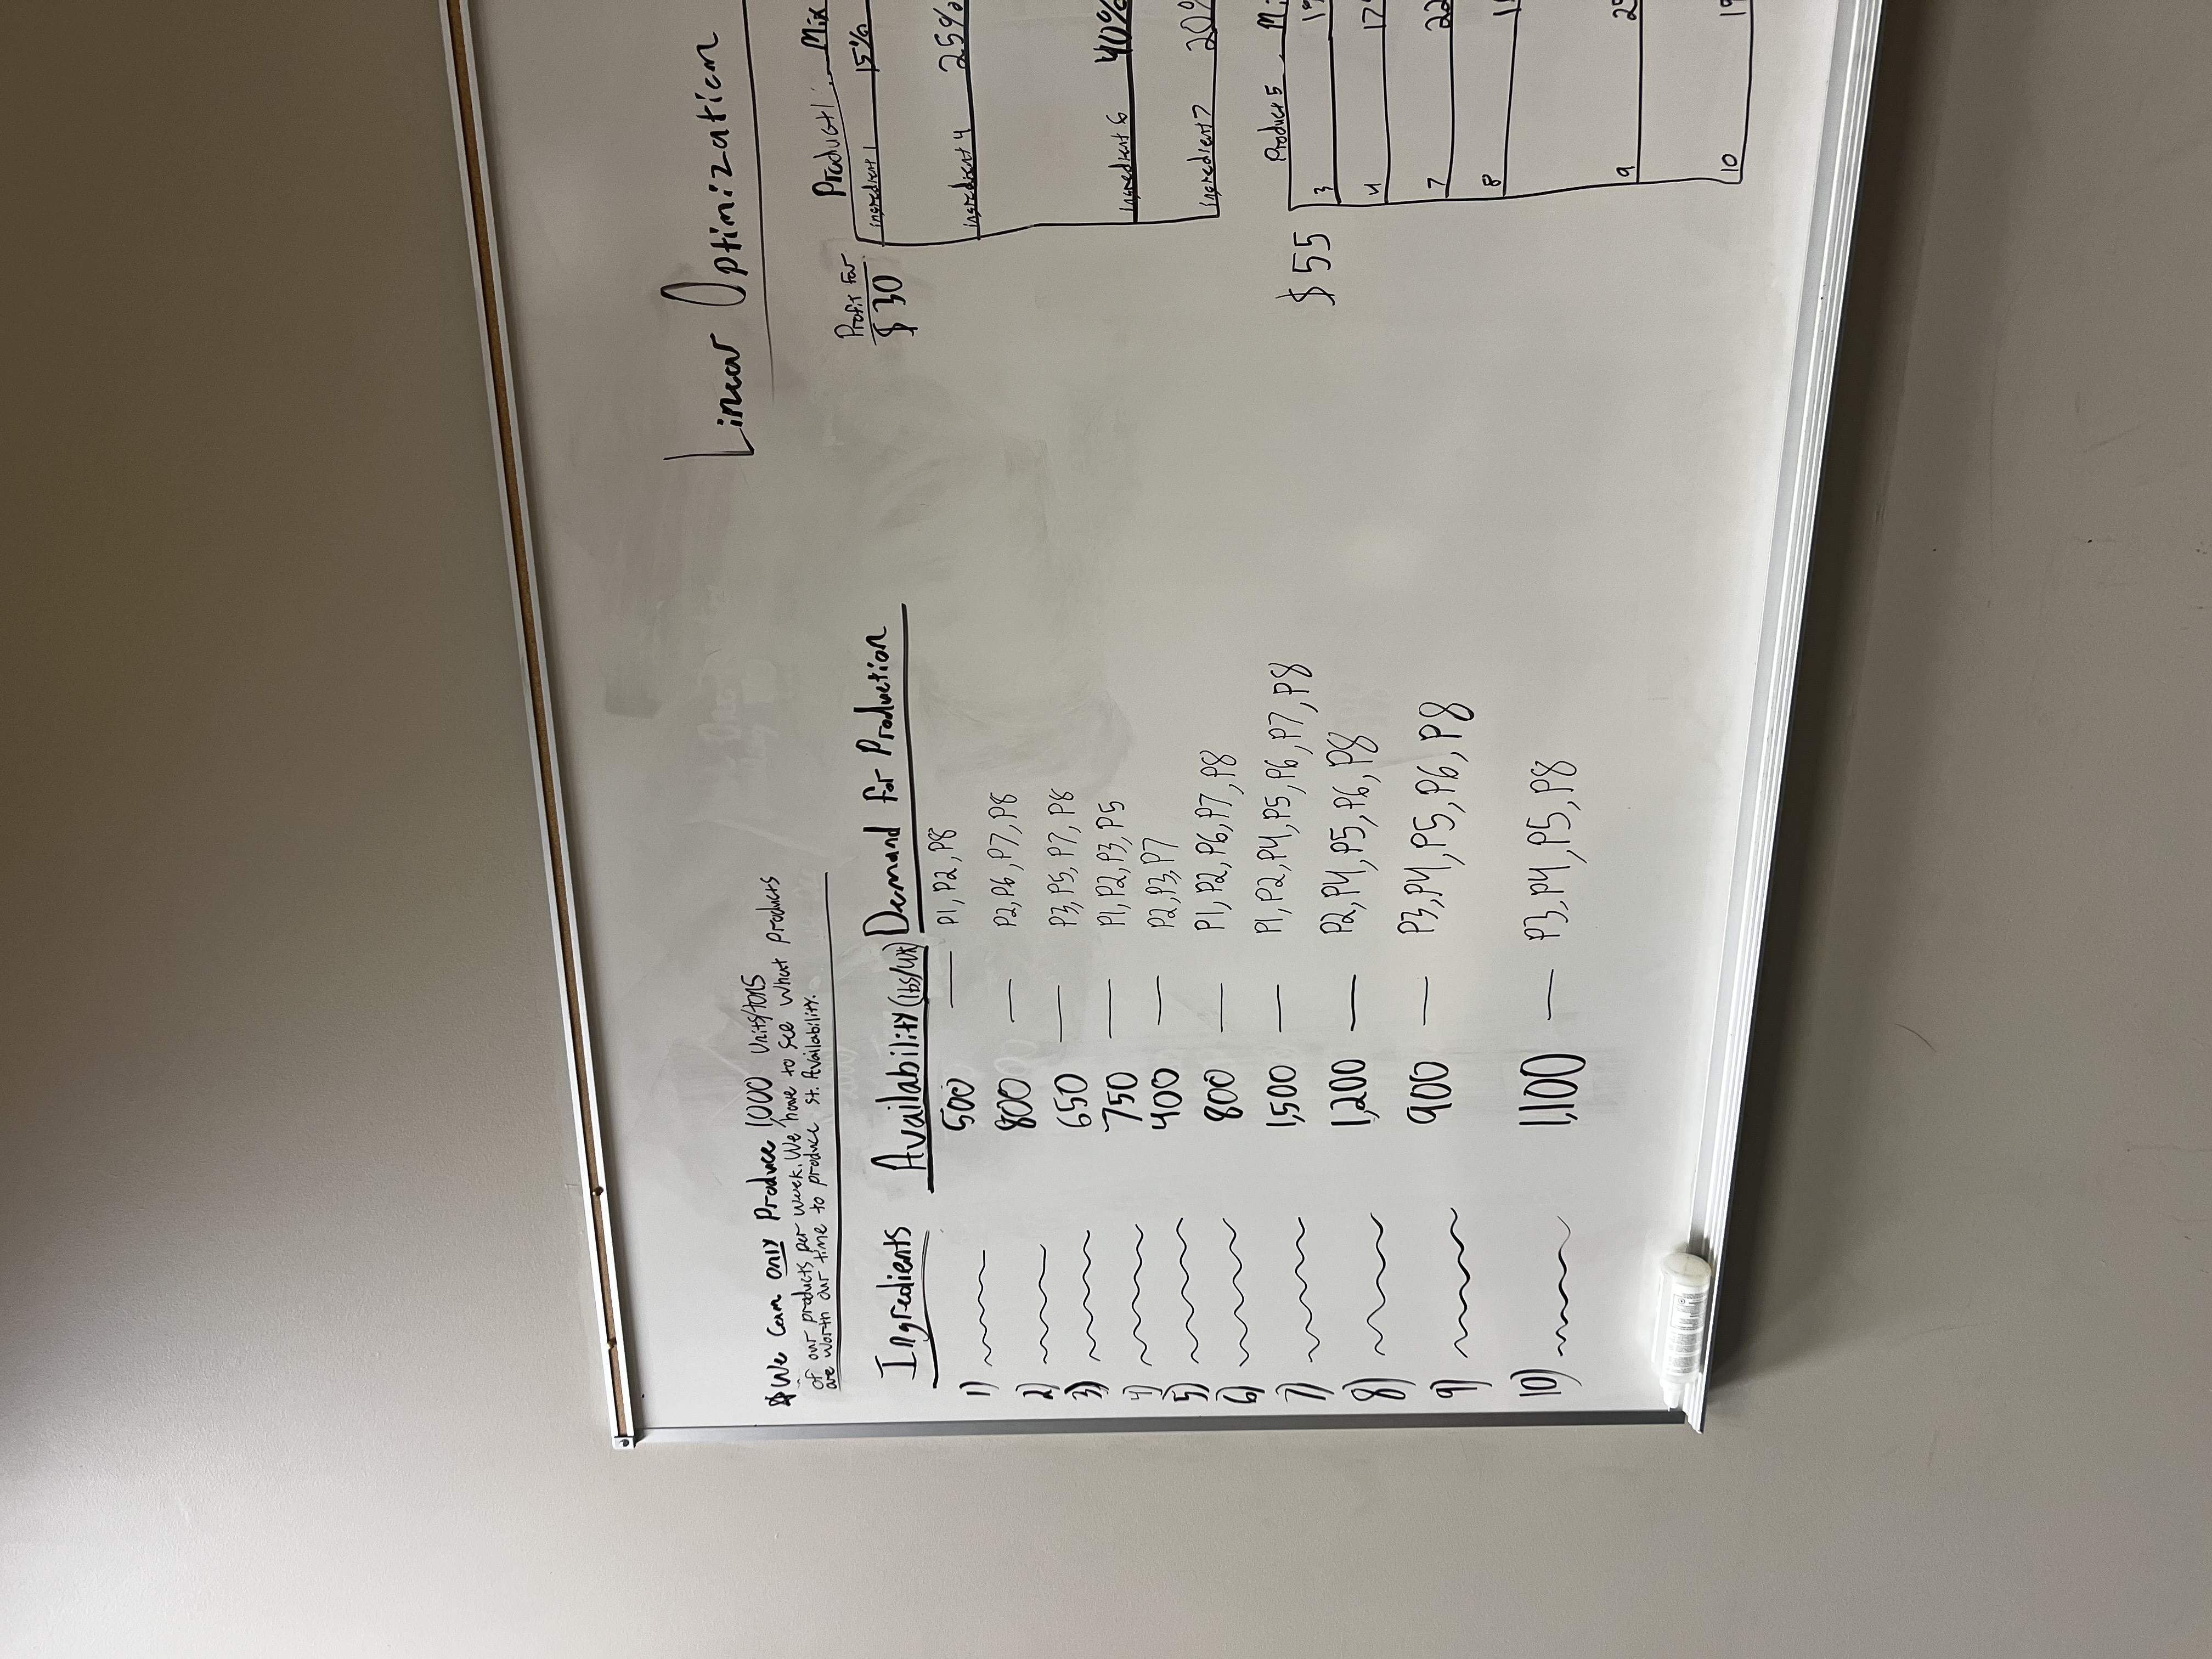 Linear Optimization
$ We can only Produce 1,000 Units/tons
of our products per week. We have to see what products
are worth our time to produce st. Availability.
Ingredients Availability (lbs/wk) Demand for Production
1) 500 — P1, P2, P8
2) 800 — P2, P6, P7, P8
3) 650 — P3, P5, P7, P8
4) 750 — P1, P2, P3, P5
5) 400 — P2, P3, P7
6) 800 — P1, P2, P6, P7, P8
7) 1,500 — P1, P2, P4, P5, P6, P7, P8
8) 1,200 — P2, P4, P5, P6, P8
9) 900 — P3, P4, P5, P6, P8
10) 1,100 — P3, P4, P5, P8
Profit For
$30
Product 1: Mix
ingredient 1 15%
ingredient 4 25%
ingredient 6 40%
ingredient 7 20%
$55
Product 5
3
4 17
7 22
8
9
10